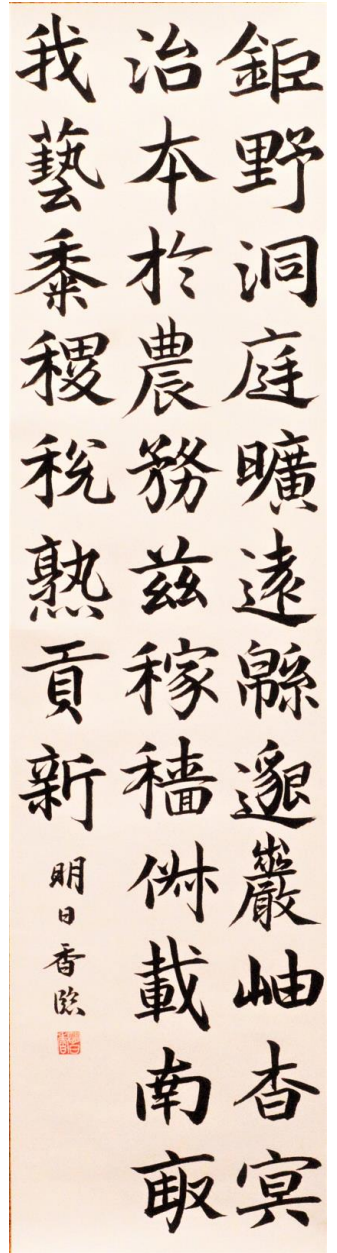 鉅野洞庭曠遠緜邈巖岫杳冥
治本於農務茲稼穡俶載南畝
我藝黍稷稅熟貢新
明日香臨